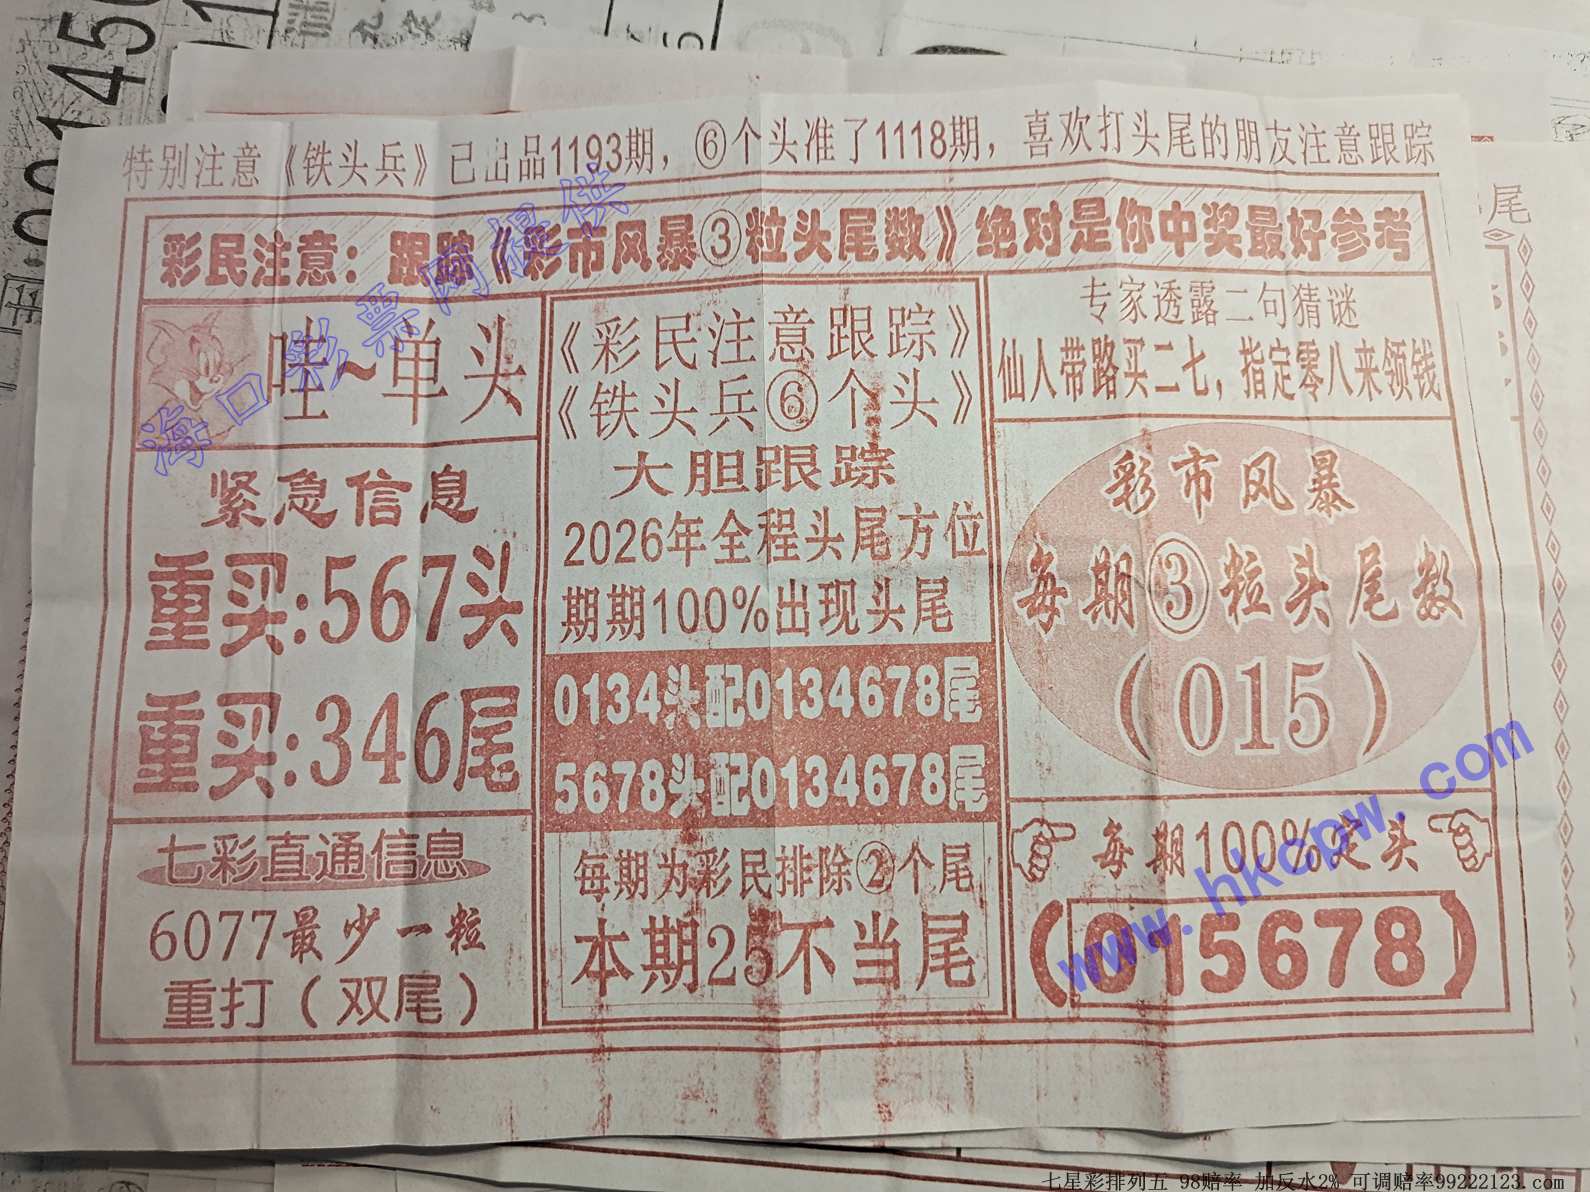 特别注意《铁头兵》已出品1193期，⑥个头准了1118期，喜欢打头尾的朋友注意跟踪
彩民注意：跟踪《彩市风暴③粒头尾数》绝对是你中奖最好参考
哇~单头
紧急信息
重买:567头
重买:346尾
七彩直通信息
6077最少一粒
重打（双尾）
《彩民注意跟踪》
《铁头兵⑥个头》
大胆跟踪
2026年全程头尾方位
期期100%出现头尾
0134头配0134678尾
5678头配0134678尾
每期为彩民排除②个尾
本期25不当尾
专家透露二句猜谜
仙人带路买二七，指定零八来领钱
彩市风暴
每期③粒头尾数
（015）
每期100%定头
（015678）
海口彩票网提供
www.hkcpw.com
尾
七星彩排列五 98赔率 加反水2% 可调赔率99222123.com